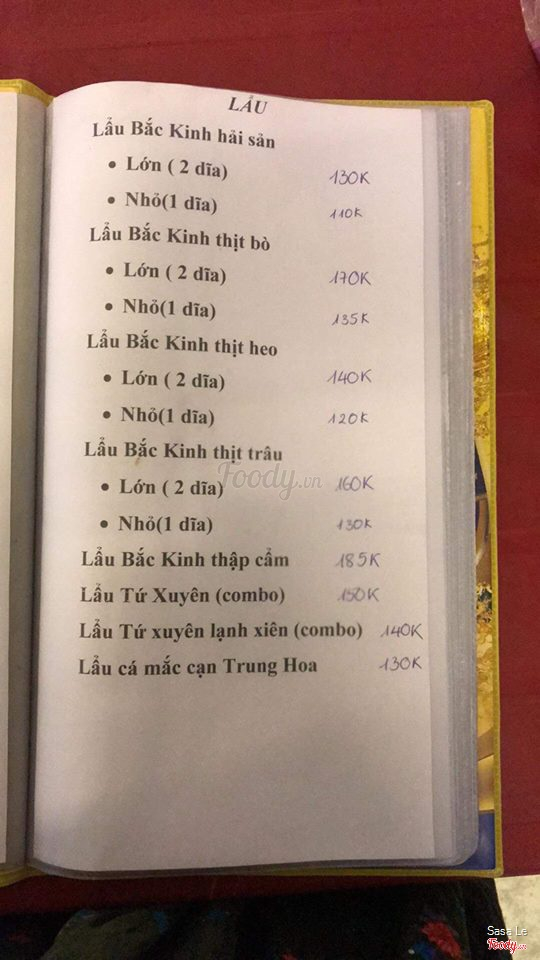 LẨU
Lẩu Bắc Kinh hải sản
• Lớn ( 2 dĩa) 130K
• Nhỏ(1 dĩa) 110K
Lẩu Bắc Kinh thịt bò
• Lớn ( 2 dĩa) 170K
• Nhỏ(1 dĩa) 135K
Lẩu Bắc Kinh thịt heo
• Lớn ( 2 dĩa) 140K
• Nhỏ(1 dĩa) 120K
Lẩu Bắc Kinh thịt trâu
• Lớn ( 2 dĩa) 160K
• Nhỏ(1 dĩa) 130K
Lẩu Bắc Kinh thập cẩm 185K
Lẩu Tứ Xuyên (combo) 150K
Lẩu Tứ xuyên lạnh xiên (combo) 140K
Lẩu cá mắc cạn Trung Hoa 130K
Foody.vn
Sasa Le
Foody.vn